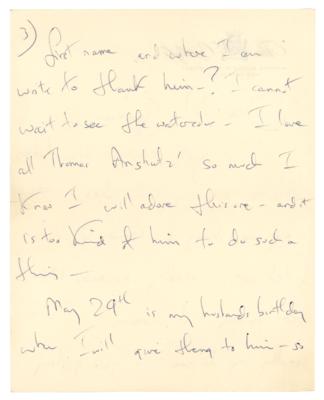 3) first name and where I can
write to thank him–? I cannot
wait to see the watercolor – I love
all Thomas Anshutz' so much I
know I will adore this one – and it
is too kind of him to do such a
thing –
May 29th is my husbands birthday
when I will give them to him – so